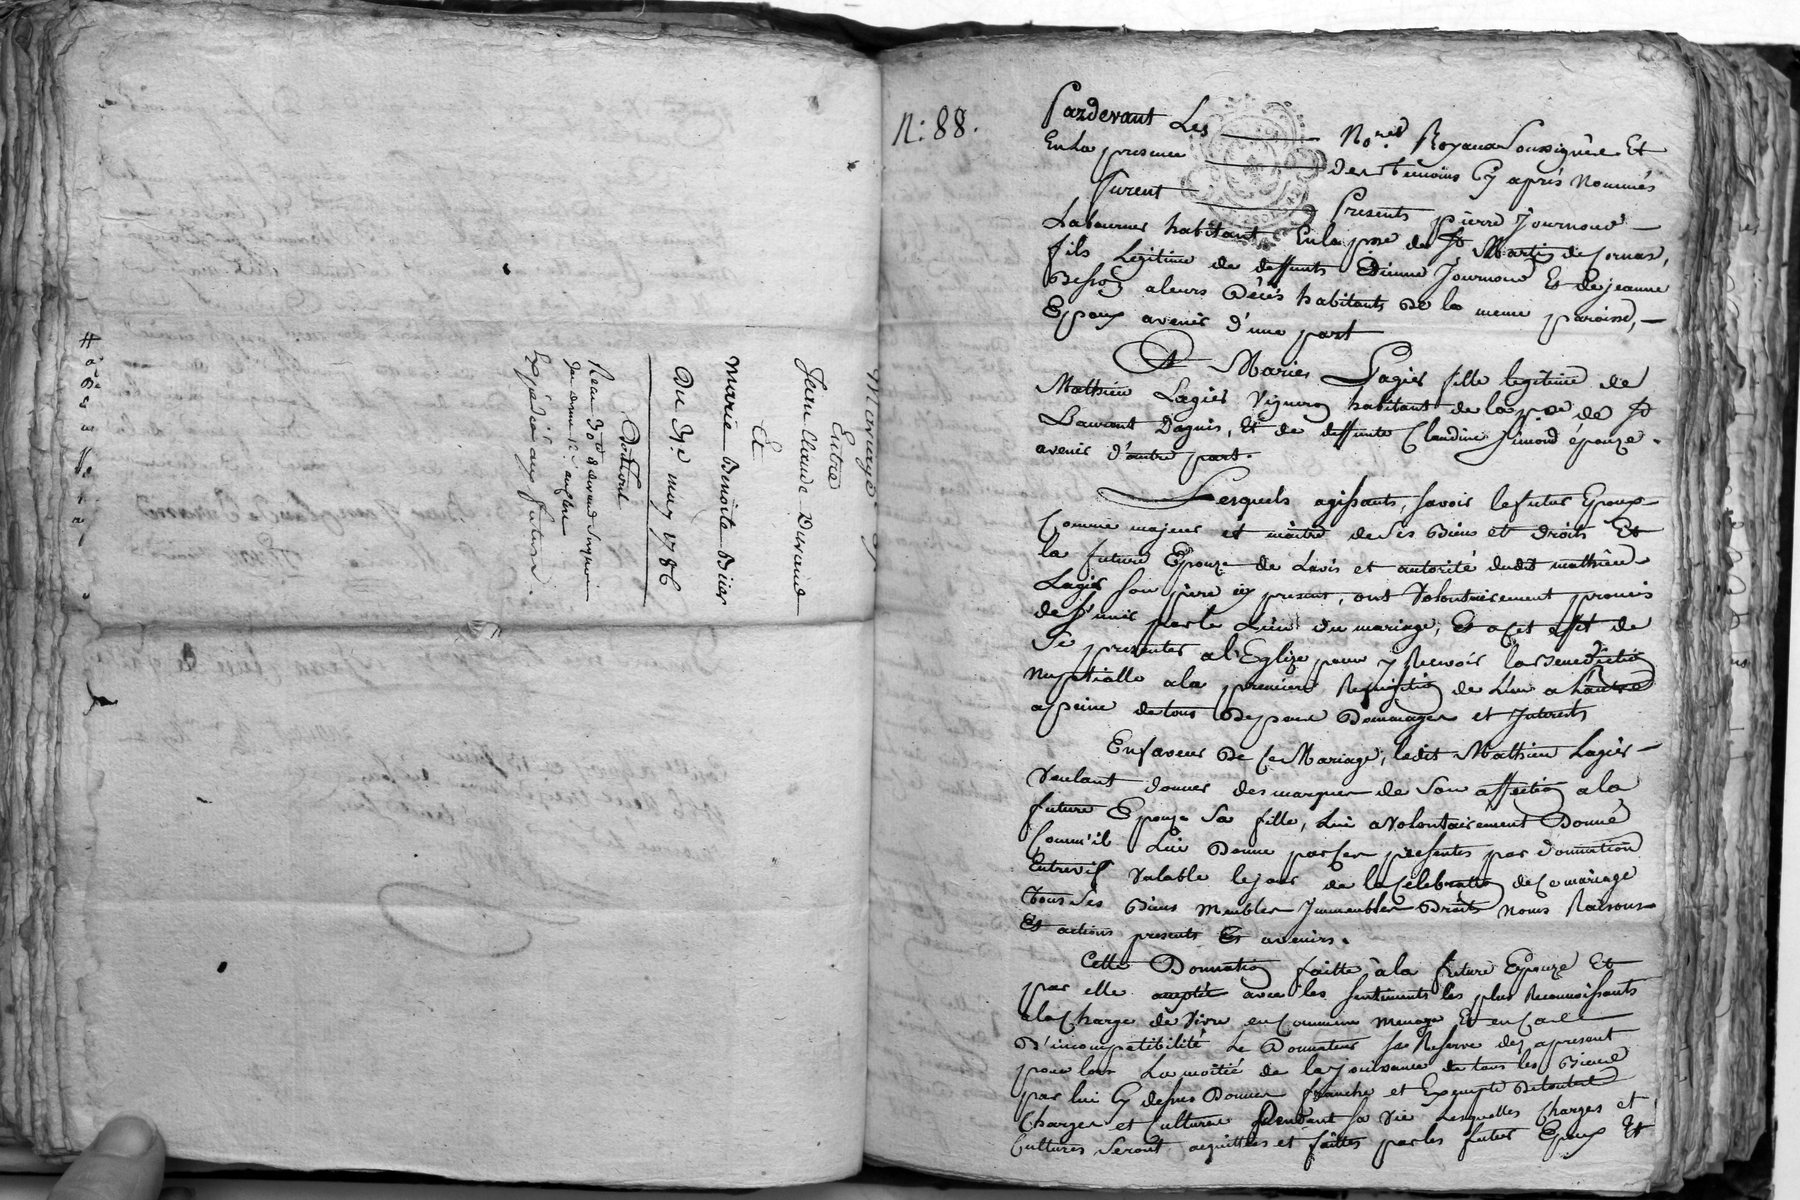 Mariage
Entre
Jean Claude Durand
Et
Marie Benoite Biier
Du 31e may 1786
Expédié aux futurs.
N: 88.
Pardevant Les No.res Royaux Soussignés Et
En la presence des temoins Cy après Nommés
furent Presents pierre Journoud
Laboureur habitant En la psse de St Martin de Cornas,
fils Legitime de deffunts Etienne Journoud Et de jeanne
Besson a leurs Décés habitants de la meme paroisse,
Epoux avenir d'une part
Et Marie Lagier fille legitime de
Mathieu Lagier Vigneron habitant de la psse de St
Laurent Dagnis, Et de deffunte Claudine Simond épouze
avenir d'autre part.
Lesquels agissants, savoir le futur Epoux
Comme majeur et maitre de Ses Biens et droits Et
la future Epouze de Lavis et autorité dudit mathieu
Lagier son père icy present, ont Volontairement promis
de S'unir par le Lien du mariage, Et a cet effet de
Se presenter a l'Eglize pour y Recevoir la Benediction
Nuptialle a la premiere Requisition de L'un a Lautre
a peine de tous Depens Dommages et Interets
En faveur De Ce Mariage, ledit Mathieu Lagier
Veulant donner des marques de Son affection a la
future Epouze Sa fille, Lui a Volontairement Donné
Comm'il Lui Donne par Ces presentes par donnation
Entrevif Valable le jour de la Celebration de Ce mariage
tous Ses Biens Meubles Immeubles Droits Noms Raisons
Et actions presents Et avenirs.
Cette Donnation faitte à la future Epouze Et
par elle acceptée avec les sentiments les plus Reconnoissants
a la Charge de Vivre en Commun Menage Et en Cas
D'incompatibilité Le Donnateur se Reserve dez apresent
pour lors La moitié de la jouissance de tous les Biens
par lui Cy dessus Donnés franche et Exempte de toutes
Charges et Cultures pendant Sa Vie Lesquelles Charges et
Cultures Seront acquittées et faittes par les futurs Epoux Et